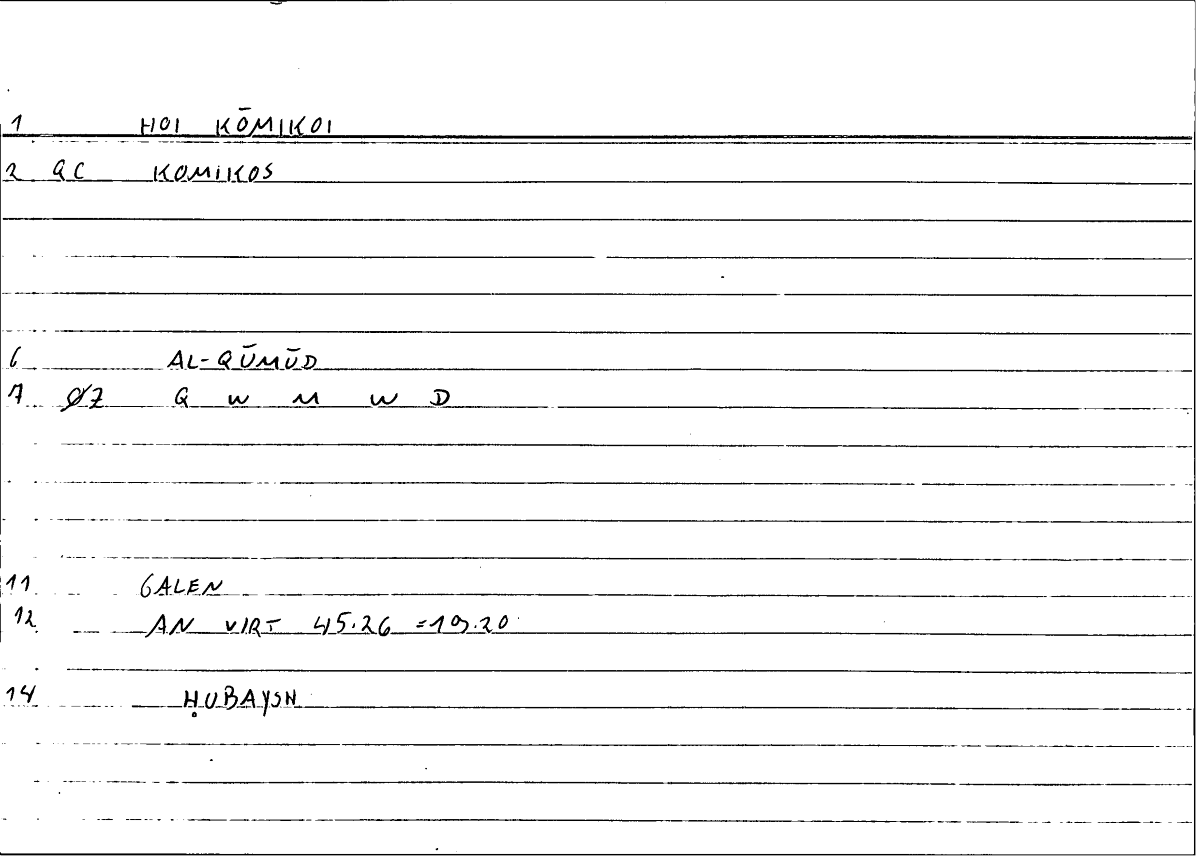 1 HOI KŌMIKOI
2 QC KOMIKOS
6 AL-QŪMŪD
7 Ø7 Q W M W D
11 GALEN
12 AN VIRT 45.26 =19.20
14 ḤUBAYSH